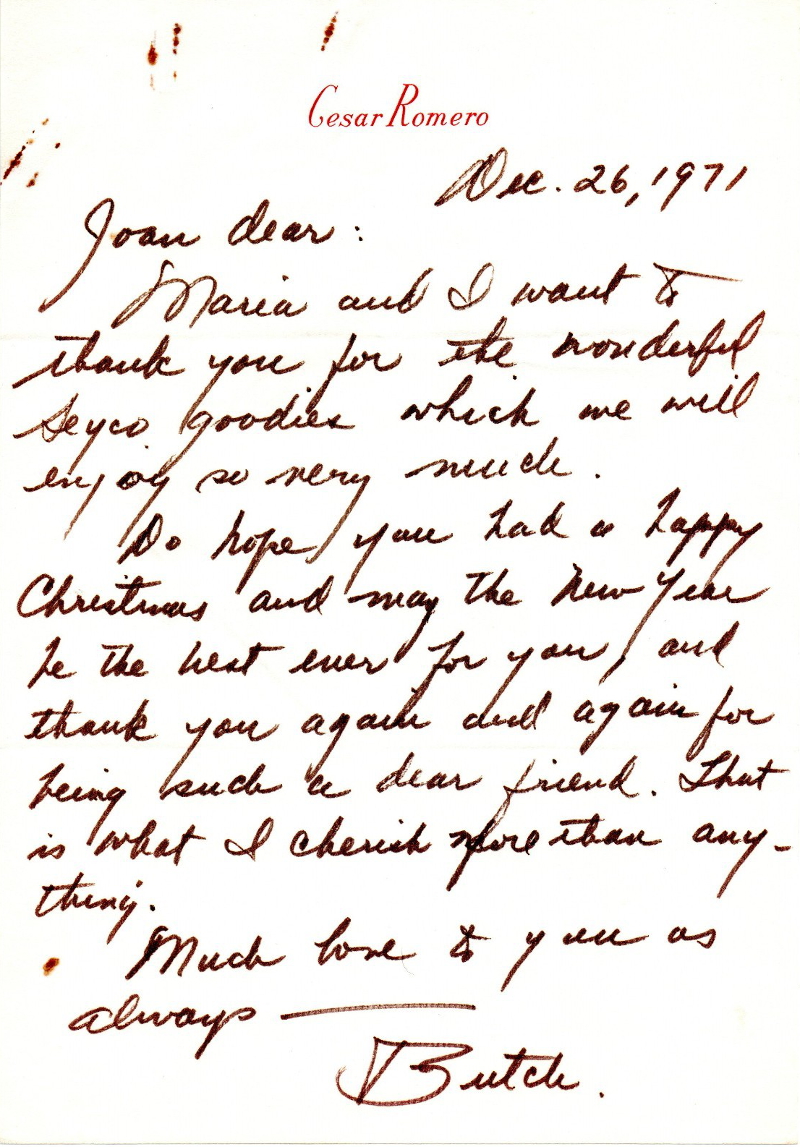 Cesar Romero
Dec. 26, 1971
Joan dear:
Maria and I want to
thank you for the wonderful
Seyco goodies which we will
enjoy so very much.
Do hope you had a happy
Christmas and may the New Year
be the best ever for you, and
thank you again and again for
being such a dear friend. That
is what I cherish more than any-
thing.
Much love to you as
always —
Butch.